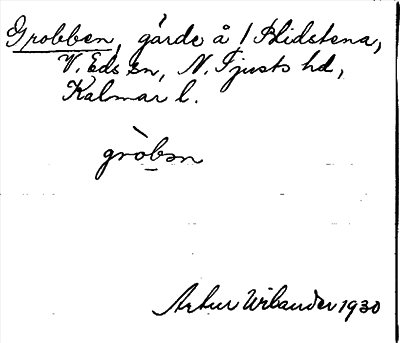 Grobben, gärde å 1 Blidstena,
V. Eds sn, N. Tjusts hd,
Kalmar l.
gròbən
Artur Wilander 1930